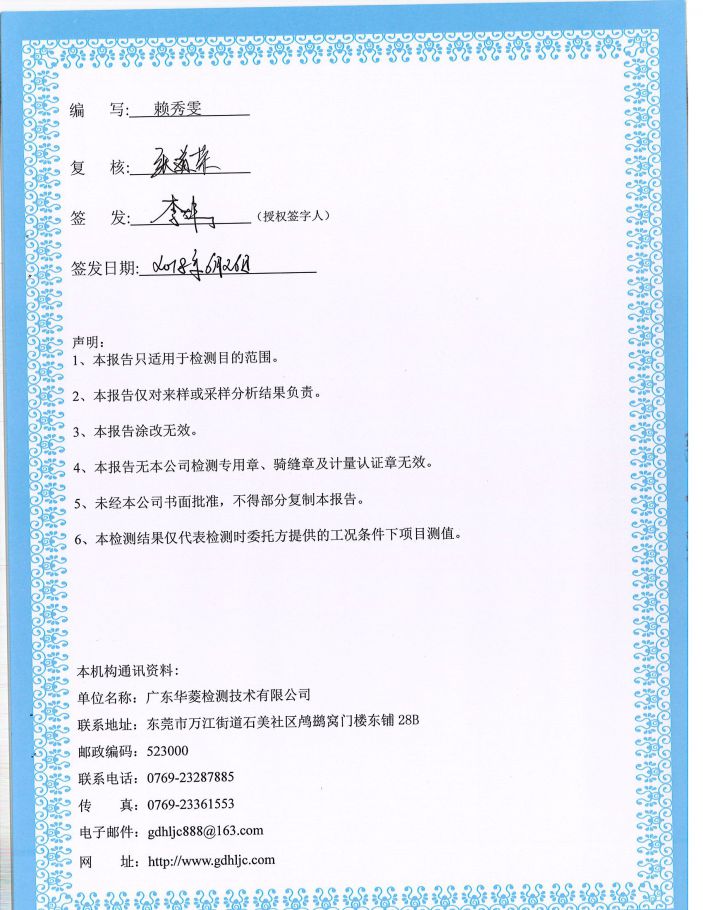 编 写: 赖秀雯
复 核:
签 发: 李 （授权签字人）
签发日期: 2018年6月26日
声明：
1、本报告只适用于检测目的范围。
2、本报告仅对来样或采样分析结果负责。
3、本报告涂改无效。
4、本报告无本公司检测专用章、骑缝章及计量认证章无效。
5、未经本公司书面批准，不得部分复制本报告。
6、本检测结果仅代表检测时委托方提供的工况条件下项目测值。
本机构通讯资料：
单位名称：广东华菱检测技术有限公司
联系地址：东莞市万江街道石美社区鸬鹚窝门楼东铺 28B
邮政编码：523000
联系电话：0769-23287885
传 真：0769-23361553
电子邮件：gdhljc888@163.com
网 址：http://www.gdhljc.com